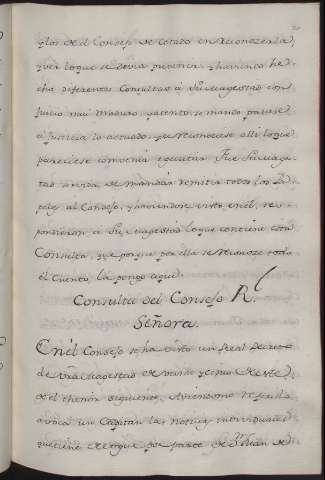 y los de el Consejo de estado en reconocerla,
y ver lo que se devia prevenir, y haviendo he-
cho diferentes Consultas a Su Magestad con
Juicio mui maduro, y atento, se mando pasase
a Justicia lo actuado, y se reconociese alli lo que
pareciese convenia egecutar. Fue Su Mages-
tad servida de mandar remitir todos los Pa-
peles al Consejo, y haviendose visto en el, res-
pondieron a Su Magestad lo que contiene esta
Consulta, que porque por ella se reconoce todo
el Cuento, la pongo aqui.
Consulta del Consejo Rl.
Señora.
En el Consejo se ha visto un Real Decreto
de Vra Magestad de veinte y cinco de este,
de el thenor siguiente.
a un Capitan las noticias individuales
que tiene de por parte de Dn Juan de